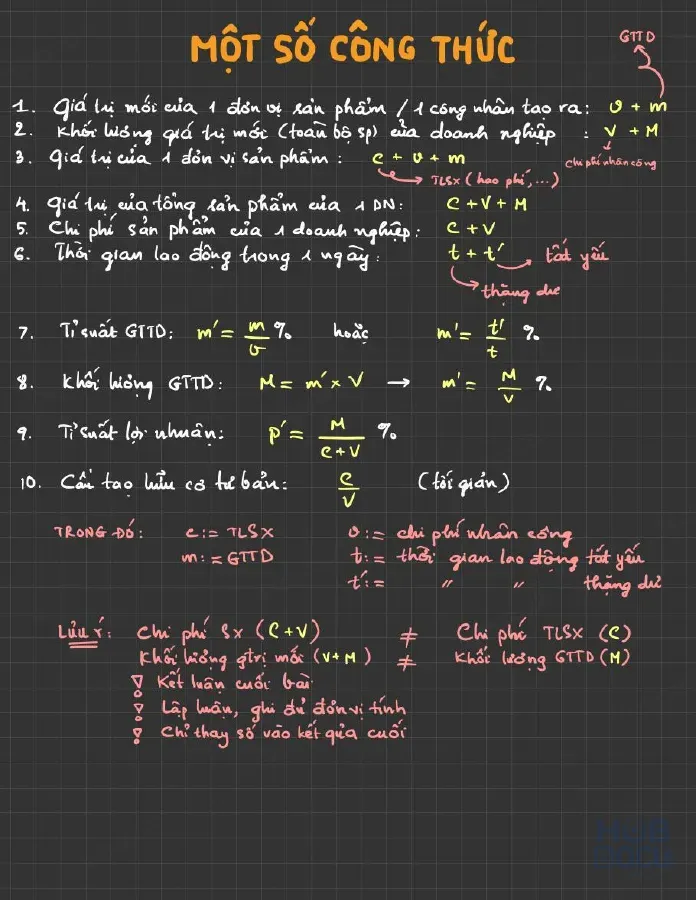 MỘT SỐ CÔNG THỨC
GTTD
1. Giá trị mới của 1 đơn vị sản phẩm / 1 công nhân tạo ra: v + m
2. Khối lượng giá trị mới (toàn bộ sp) của doanh nghiệp : V + M
chi phí nhân công
3. Giá trị của 1 đơn vị sản phẩm : c + v + m
TLSX (hao phí,...)
4. Giá trị của tổng sản phẩm của 1 DN: C + V + M
5. Chi phí sản phẩm của 1 doanh nghiệp: C + V
6. Thời gian lao động trong 1 ngày: t + t' tất yếu
thặng dư
7. Tỉ suất GTTD: m' = m/v % hoặc m' = t'/t %
8. Khối lượng GTTD: M = m' x V → m' = M/V %
9. Tỉ suất lợi nhuận: p' = M/(C+V) %
10. Cấu tạo hữu cơ tư bản: C/V (tối giản)
TRONG ĐÓ: c := TLSX v := chi phí nhân công
m := GTTD t := thời gian lao động tất yếu
t' := " " thặng dư
Lưu ý: Chi phí SX (C+V) ≠ Chi phí TLSX (C)
Khối lượng gtrị mới (V+M) ≠ Khối lượng GTTD (M)
Kết luận cuối bài
Lập luận, ghi đủ đơn vị tính
Chỉ thay số vào kết quả cuối